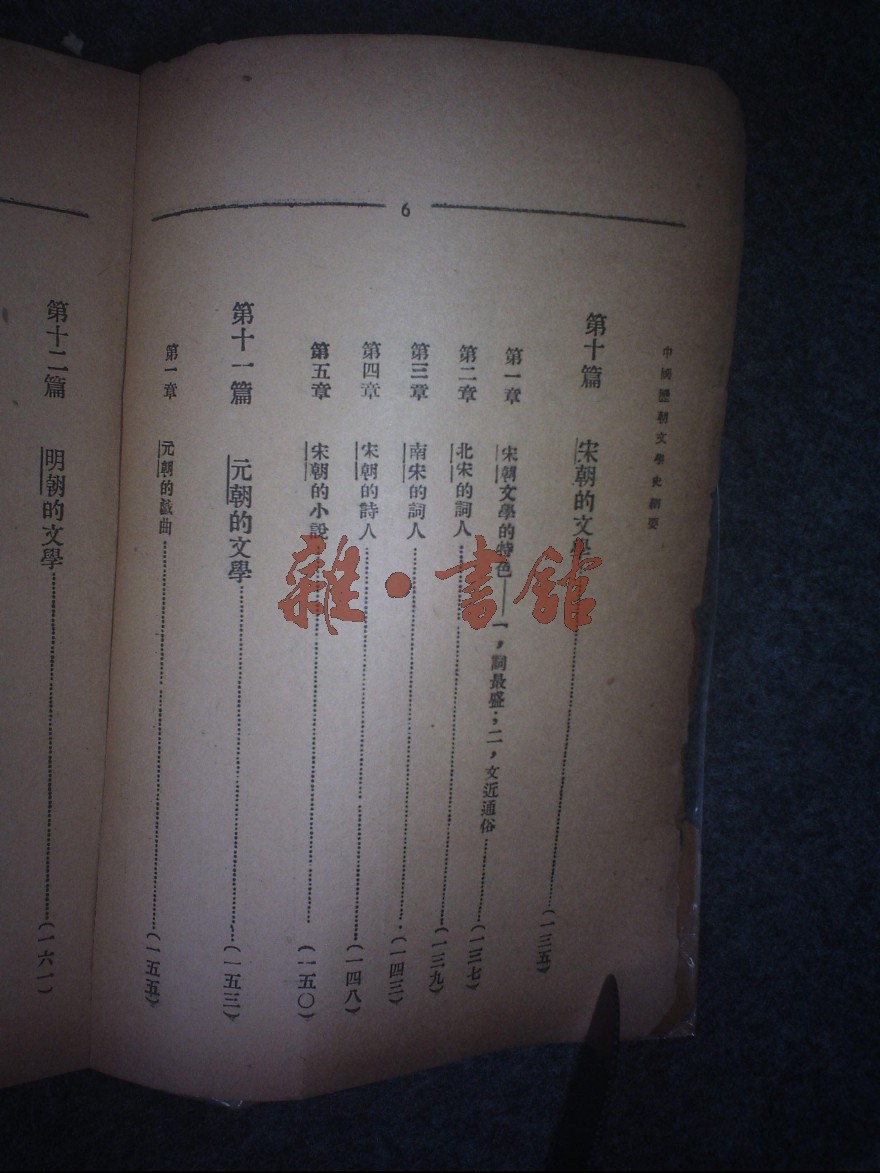 6
中國歷朝文學史綱要
第十篇 宋朝的文學……(一三五)
第一章 宋朝文學的特色——一，詞最盛；二，文近通俗……(一三七)
第二章 北宋的詞人……(一三九)
第三章 南宋的詞人……(一四三)
第四章 宋朝的詩人……(一四八)
第五章 宋朝的小說……(一五〇)
第十一篇 元朝的文學……(一五三)
第一章 元朝的戲曲……(一五五)
第十二篇 明朝的文學……(一六一)
雜·書館